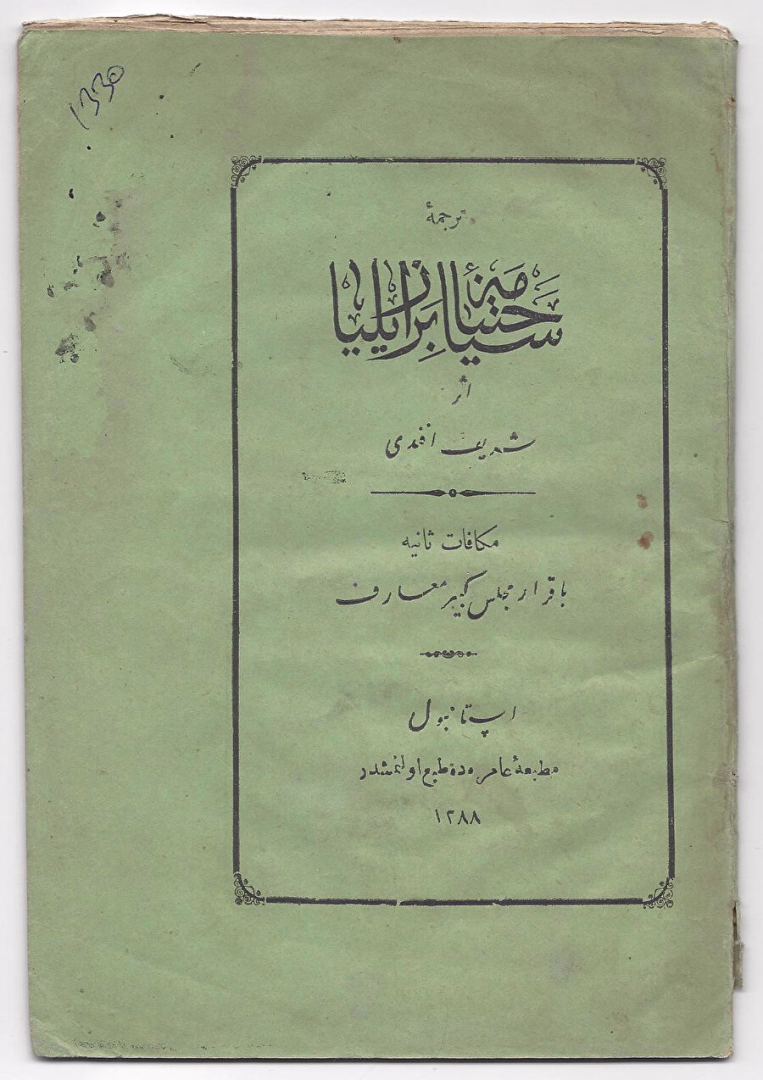 1330
ترجمهٔ
سیاحتنامهٔ برازیلیا
اثر
شریف افندی
مکافات ثانیه
باقرار مجلس کبیر معارف
استانبول
مطبعهٔ عامره ده طبع اولنمشدر
١٢٨٨